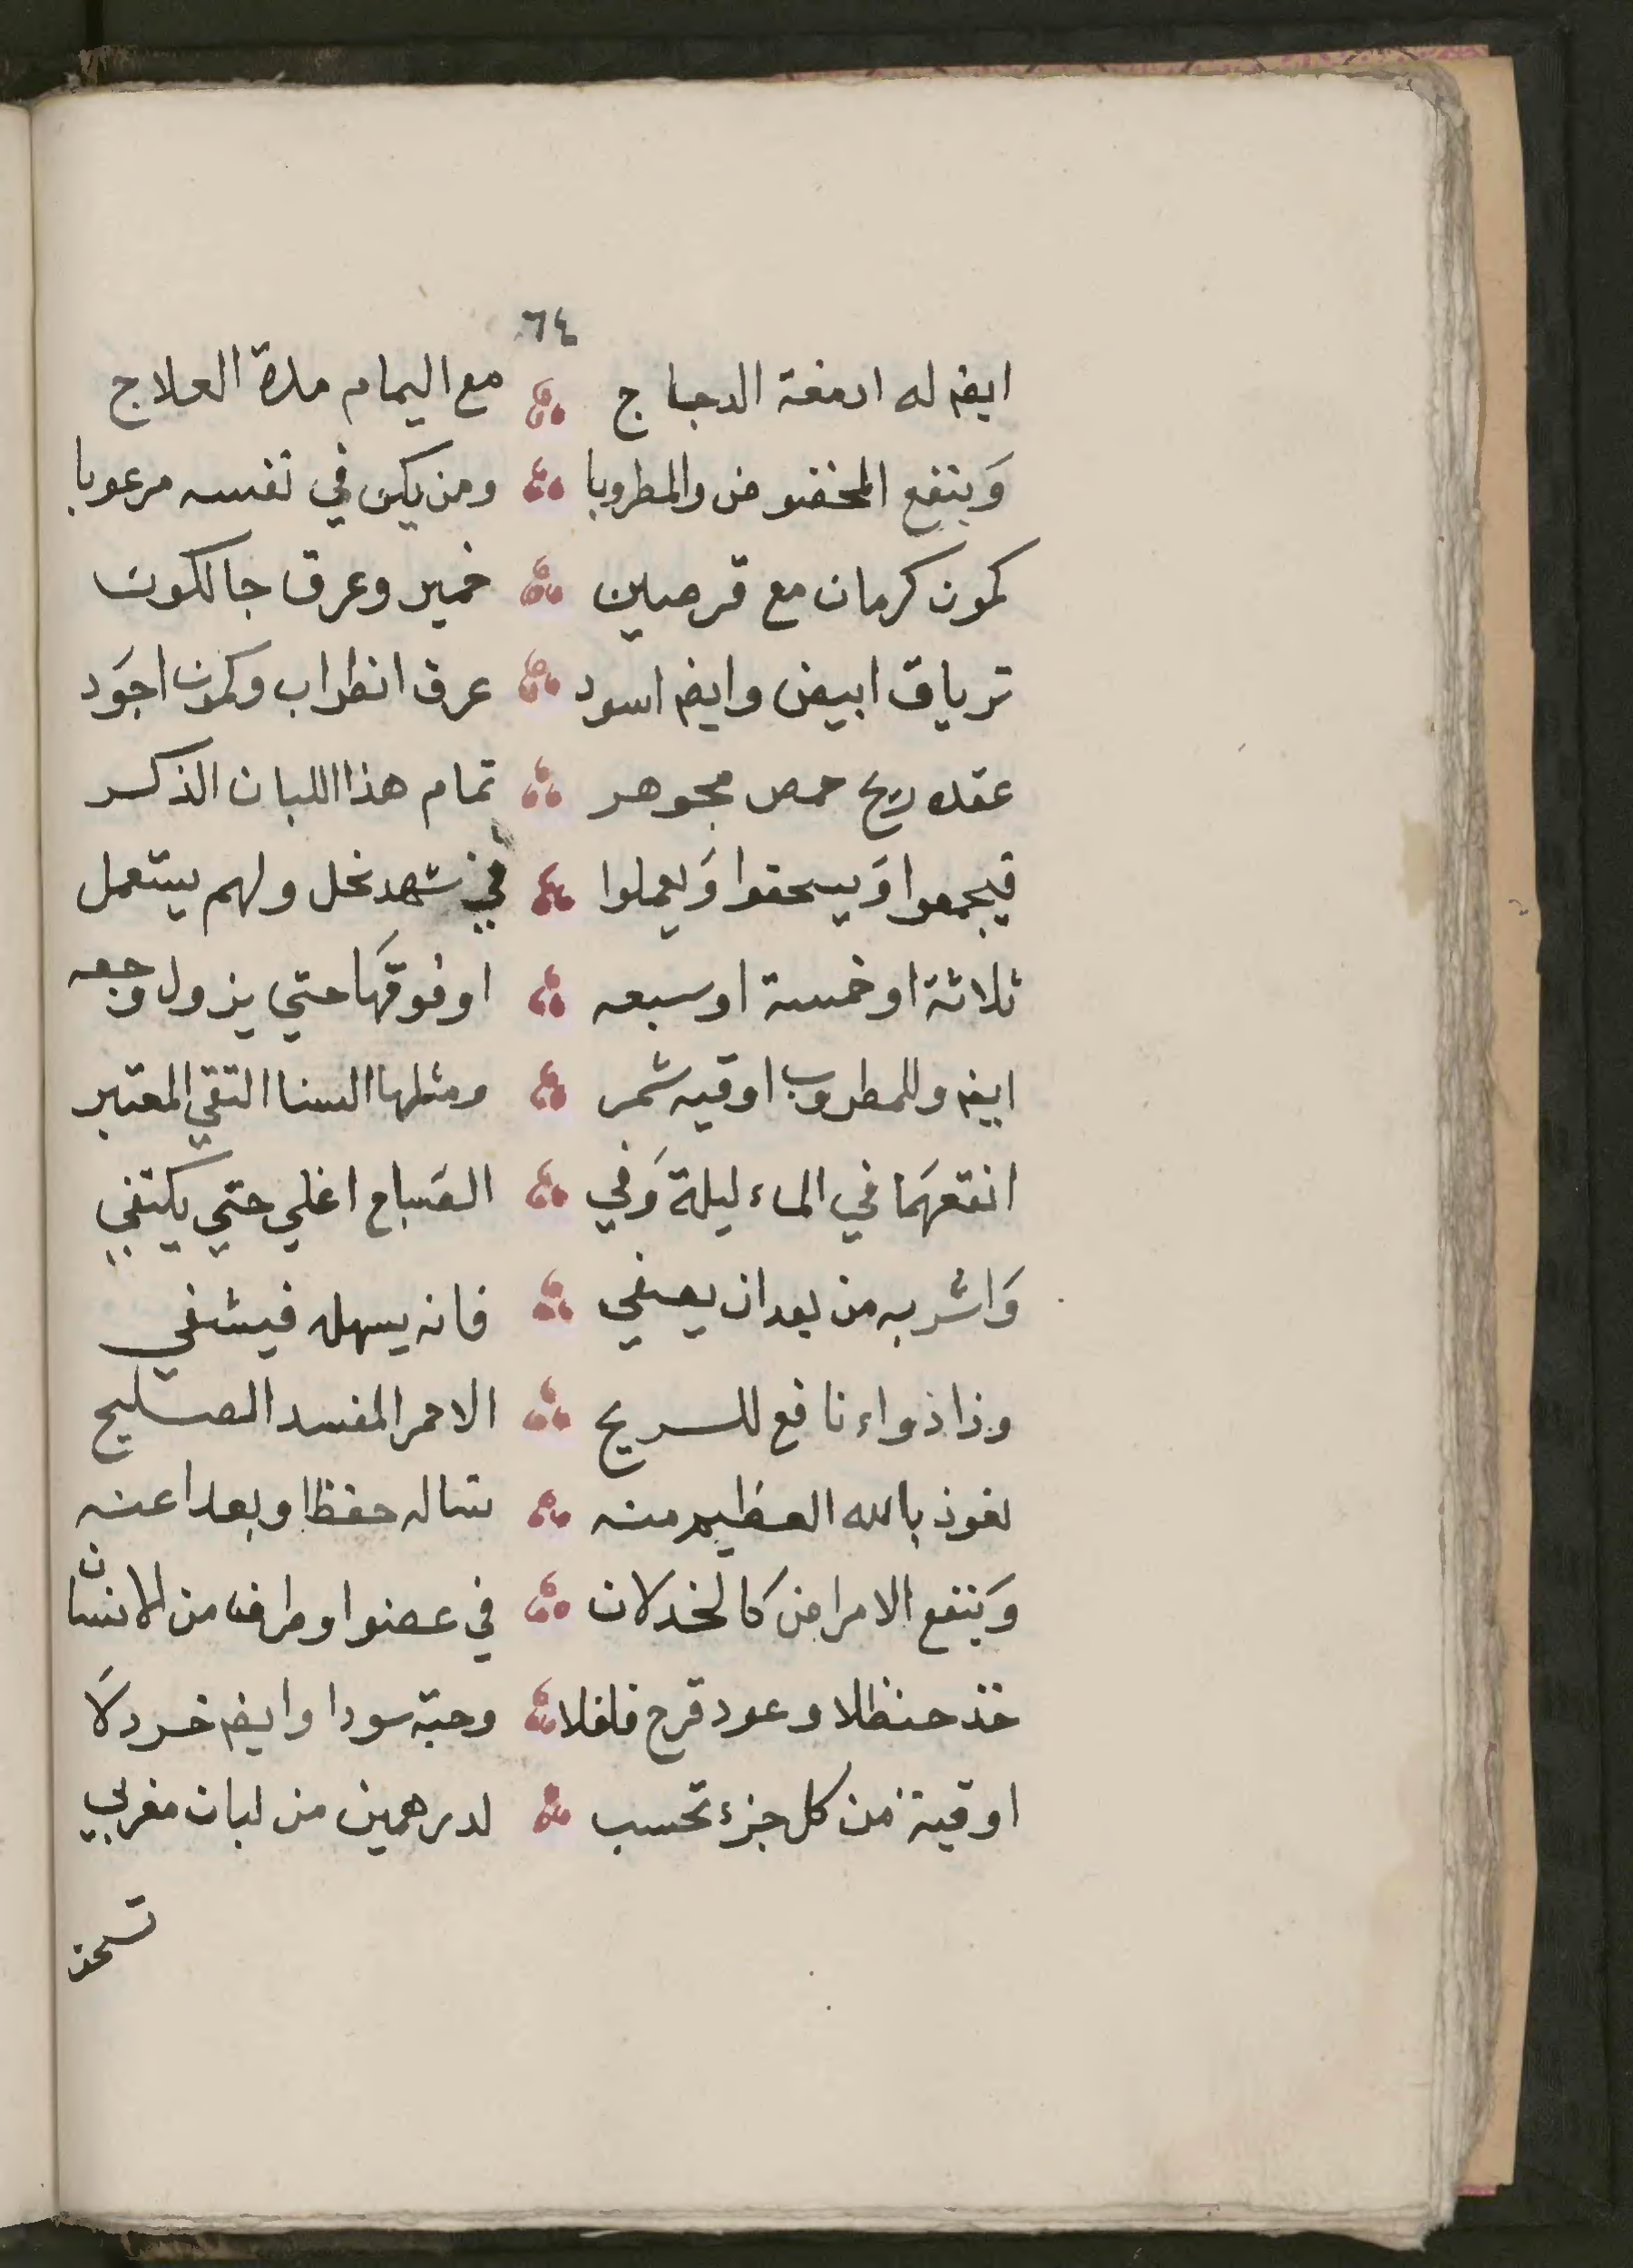 ٦٤
ايضم له ادمغة الدجاج مع اليمام مدة العلاج
وَينفع المخضوض والمطروبا ومن يكن في نفسه مرعوبا
كمون كرمان مع قرصين خمير وعرق جا لكون
ترياق ابيض وايضم اسود عرق انظراب وكمون اجوَد
عقده ريح حمص مجوهر تمام هذا اللبان الذكر
فيجمعوا وَيسحقوا وَيعملوا في شهد نحل ولهم يستعمل
ثلاثة او خمسة او سبعه او فوقهَا حتي يزول وجعه
ايضم وللمطروب اوقيه شمر ومثلها السنا التقي المعتبر
انقعهَما في الماء ليلة وَفي الصَباح اغلي حتي يكتفي
وَاشربه من بعد ان يصفي فانه يسهل فيشفي
وذا ذواء نافع للسريح الاحمر المفسد الصليح
نعوذ بالله العظيم منه نساله حفظا وبعدا عنه
وَينفع الامراض كالخدلان في عضوا وطرفه من الانسان
خذ حنظلا وعود قرح فلفلا وحبة سودا وايضم خردلَا
اوقية من كل جزء تحسب لدرهمين من لبان مغربي
تسحق